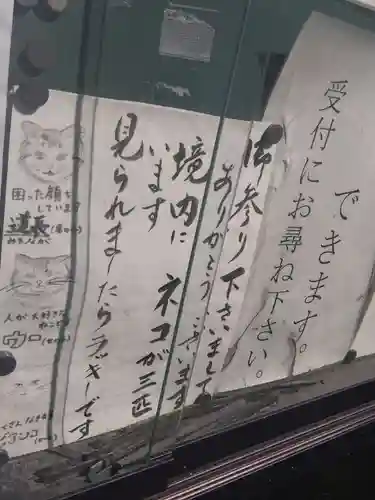 できます。
受付にお尋ね下さい。
御参り下さいまして
ありがとうございます
境内に ネコが三匹
います
見られましたらラッキーです
困った顔を
しています
道長
人が大好きな
ウロ